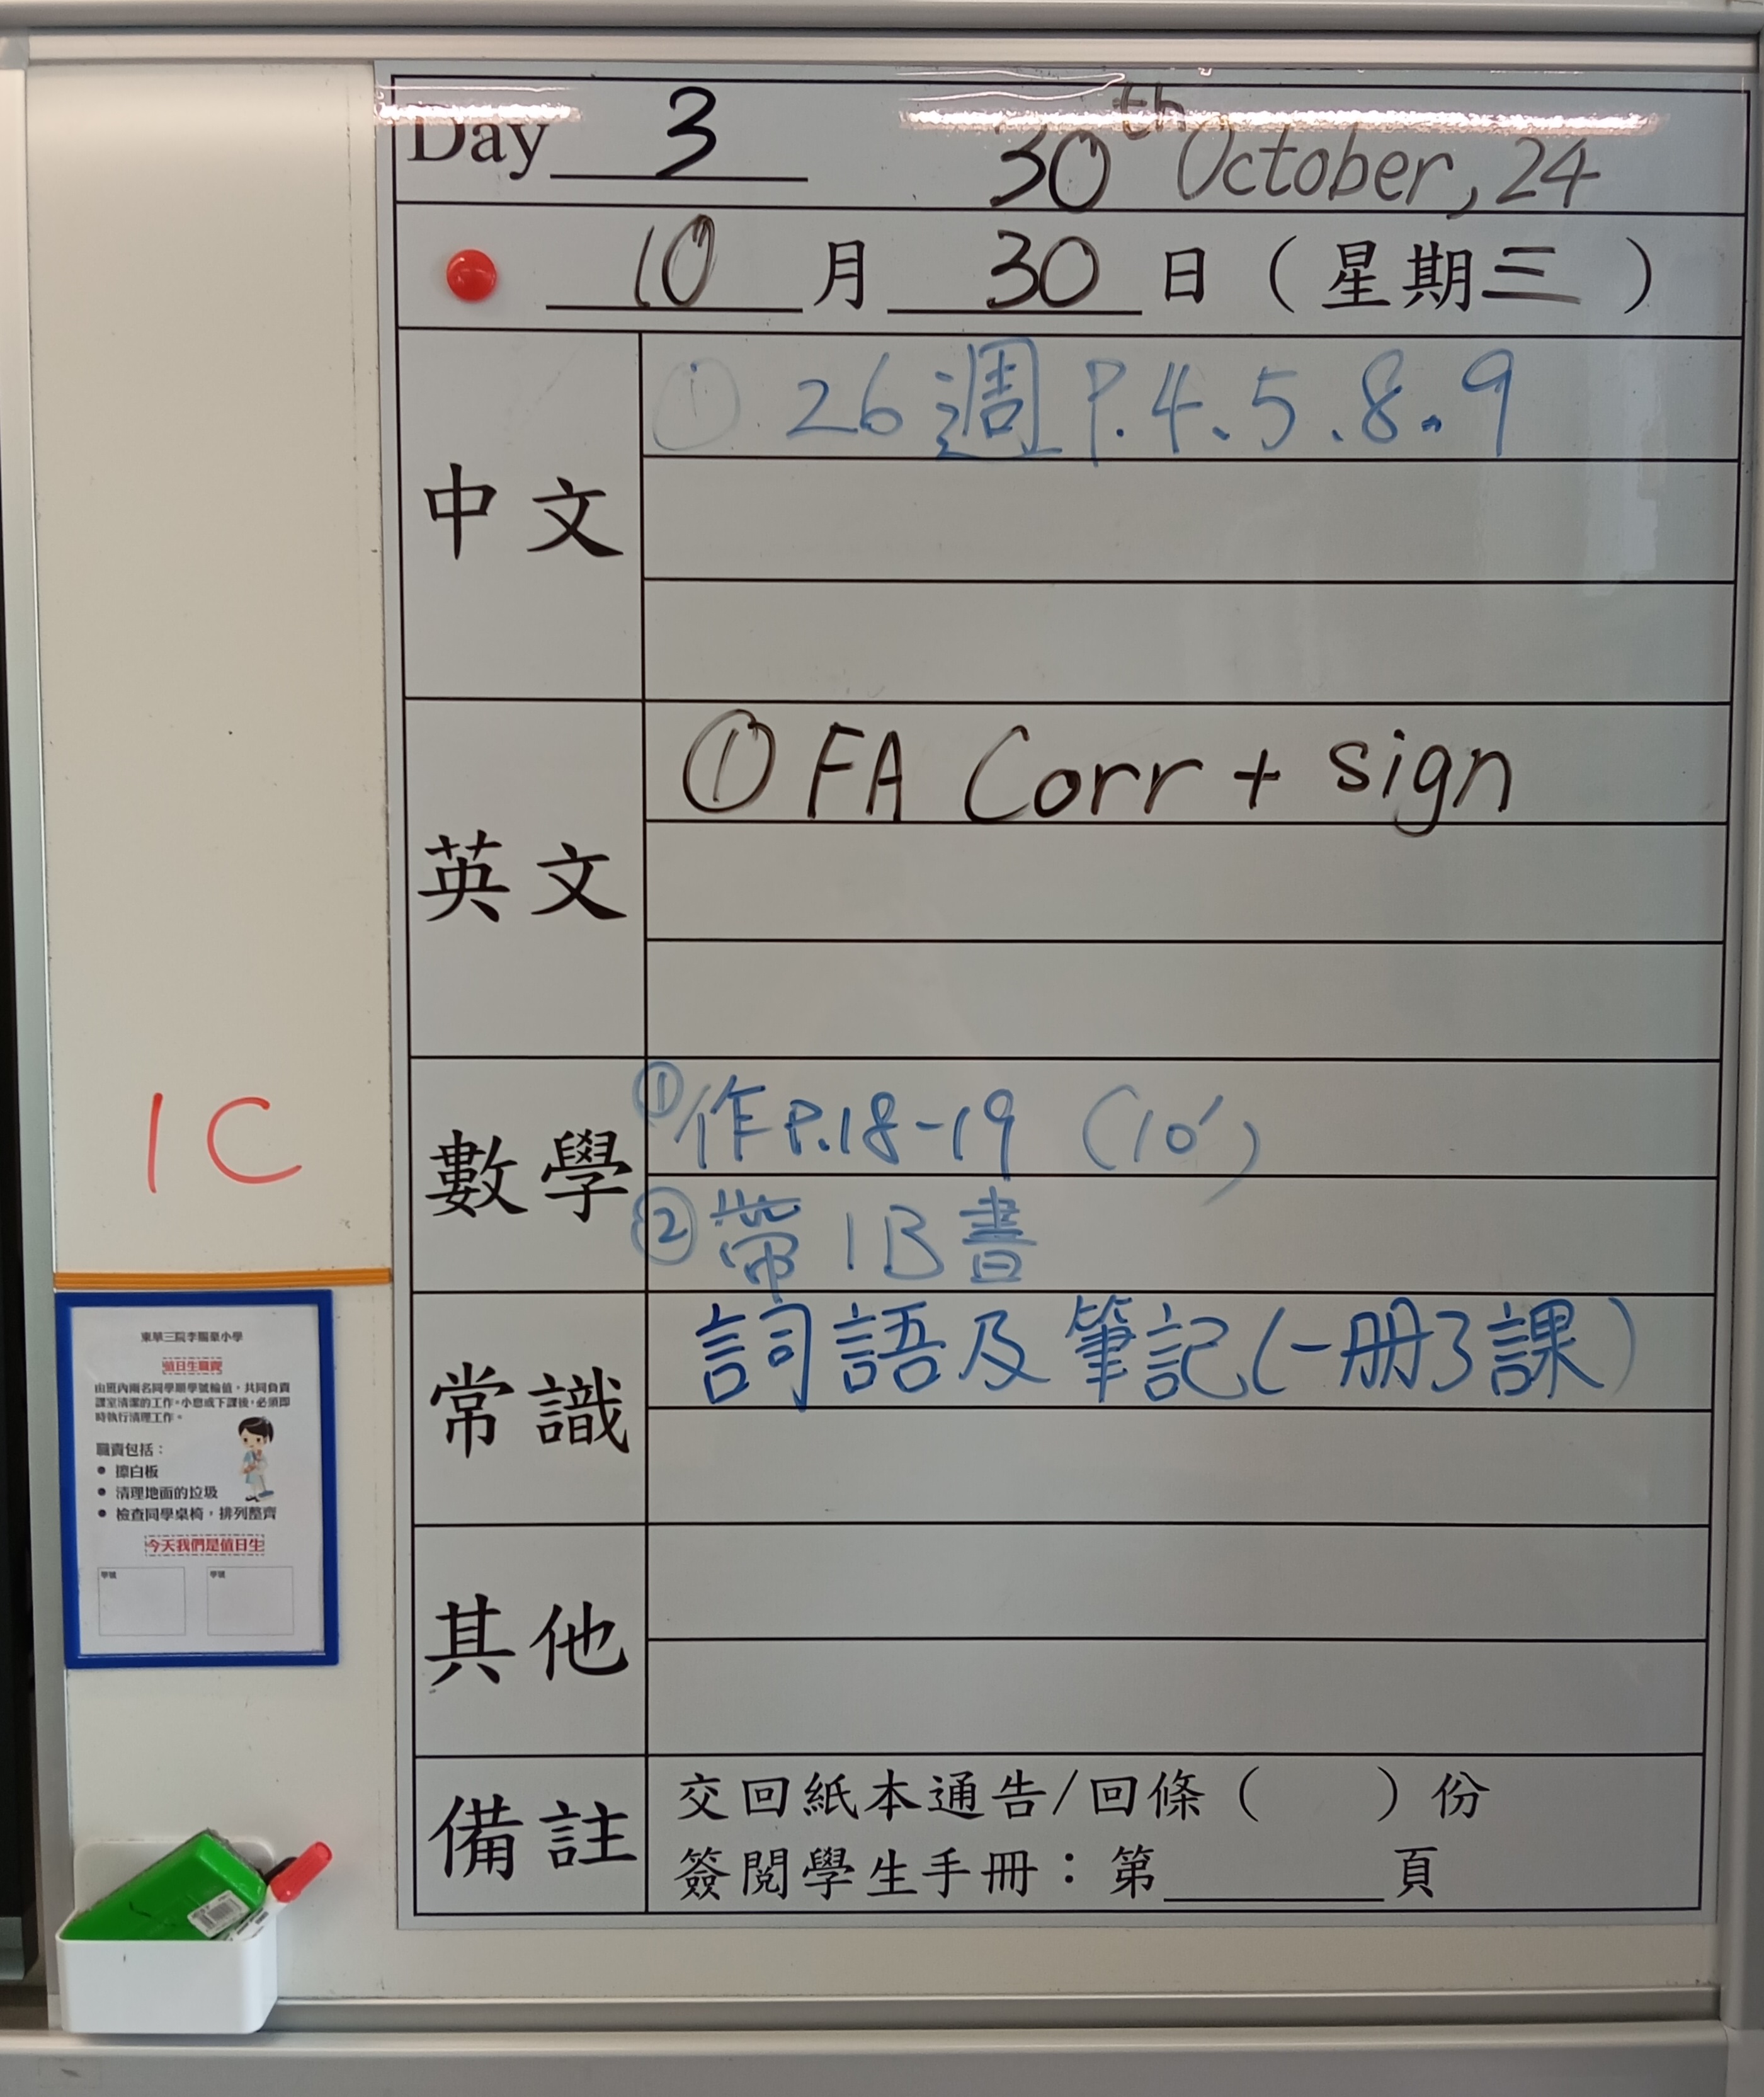 Day 3 30th October, 24
10月30日（星期三）
中文
① 26週 P.4、5、8、9
英文
① FA Corr + sign
數學
①作P.18-19 (10')
②帶1B書
常識
詞語及筆記(一冊3課)
其他
備註
交回紙本通告/回條（ ）份
簽閱學生手冊：第______頁
1C
值日生職責
由班內兩名同學順學號輪值，共同負責
課室清潔的工作。小息或下課後，必須即
時執行清理工作。
職責包括：
• 擦白板
• 清理地面的垃圾
• 檢查同學桌椅，排列整齊
今天我們是值日生
學號 學號